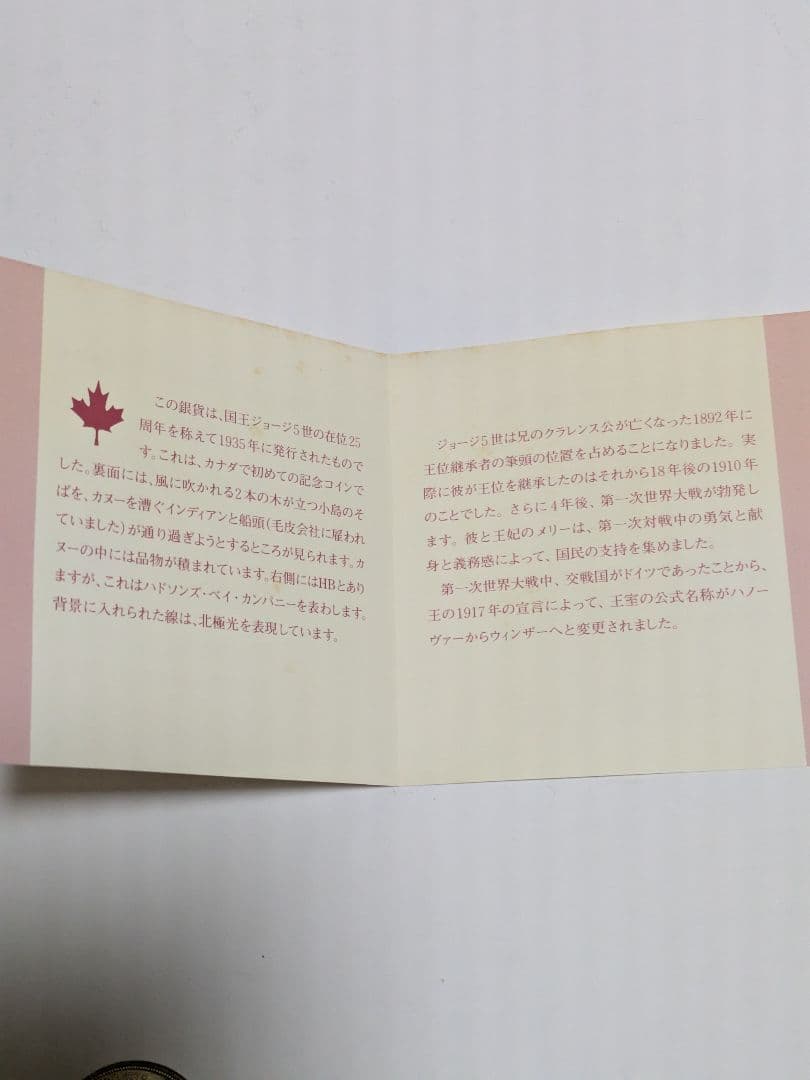 この銀貨は、国王ジョージ5世の在位25
周年を称えて1935年に発行されたもので
す。これは、カナダで初めての記念コインで
した。裏面には、風に吹かれる2本の木が立つ小島のそ
ばを、カヌーを漕ぐインディアンと船頭(毛皮会社に雇われ
ていました)が通り過ぎようとするところが見られます。カ
ヌーの中には品物が積まれています。右側にはHBとあり
ますが、これはハドソンズ・ベイ・カンパニーを表わします。
背景に入れられた線は、北極光を表現しています。
ジョージ5世は兄のクラレンス公が亡くなった1892年に
王位継承者の筆頭の位置を占めることになりました。実
際に彼が王位を継承したのはそれから18年後の1910年
のことでした。さらに4年後、第一次世界大戦が勃発し
ます。彼と王妃のメリーは、第一次対戦中の勇気と献
身と義務感によって、国民の支持を集めました。
第一次世界大戦中、交戦国がドイツであったことから、
王の1917年の宣言によって、王室の公式名称がハノー
ヴァーからウィンザーへと変更されました。